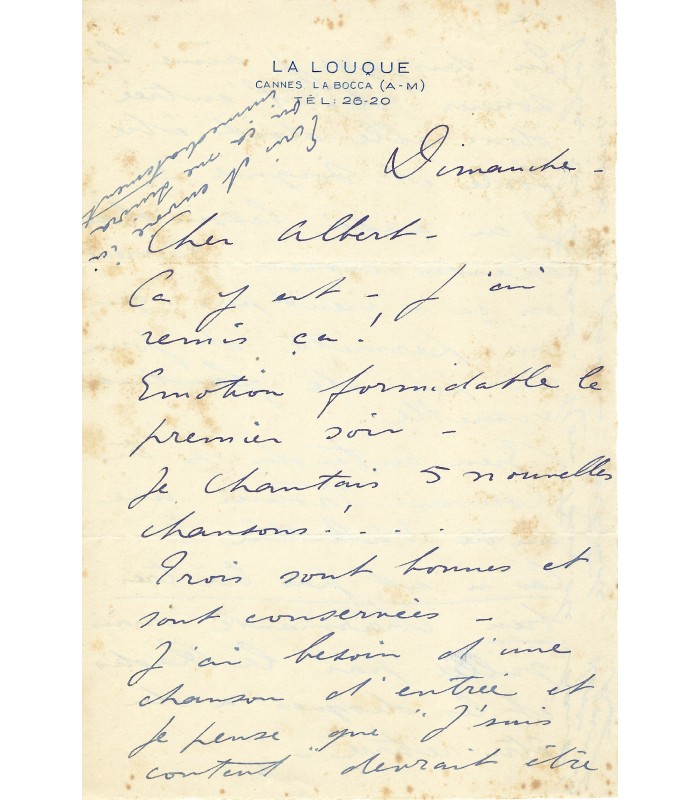 LA LOUQUE
CANNES LA BOCCA (A-M)
TÉL: 26-20
Ecris et envoie ici
on ça me suivra
immédiatement
Dimanche -
Cher Albert -
Ca y est - J'ai
remis ça!
Emotion formidable le
premier soir -
Je chantais 5 nouvelles
chansons! . . . .
Trois sont bonnes et
sont conservées -
J'ai besoin d'une
chanson d'entrée et
je pense que "J'suis
content" devrait être